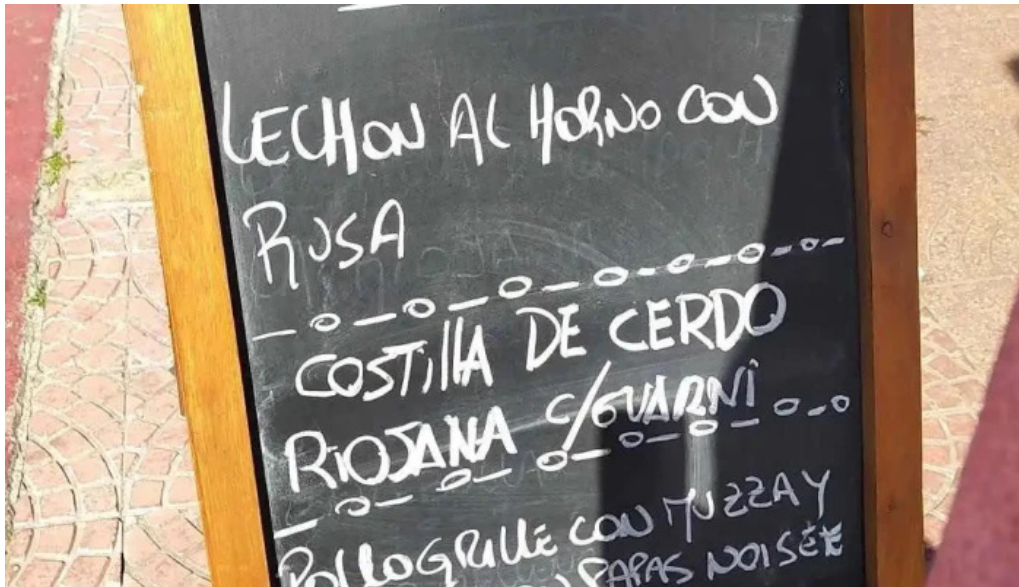 LECHON AL HORNO CON
RUSA
COSTILLA DE CERDO
RIOJANA C/GUARNI
POLLO GRILLE CON MUZZA Y
PAPAS NOISETE